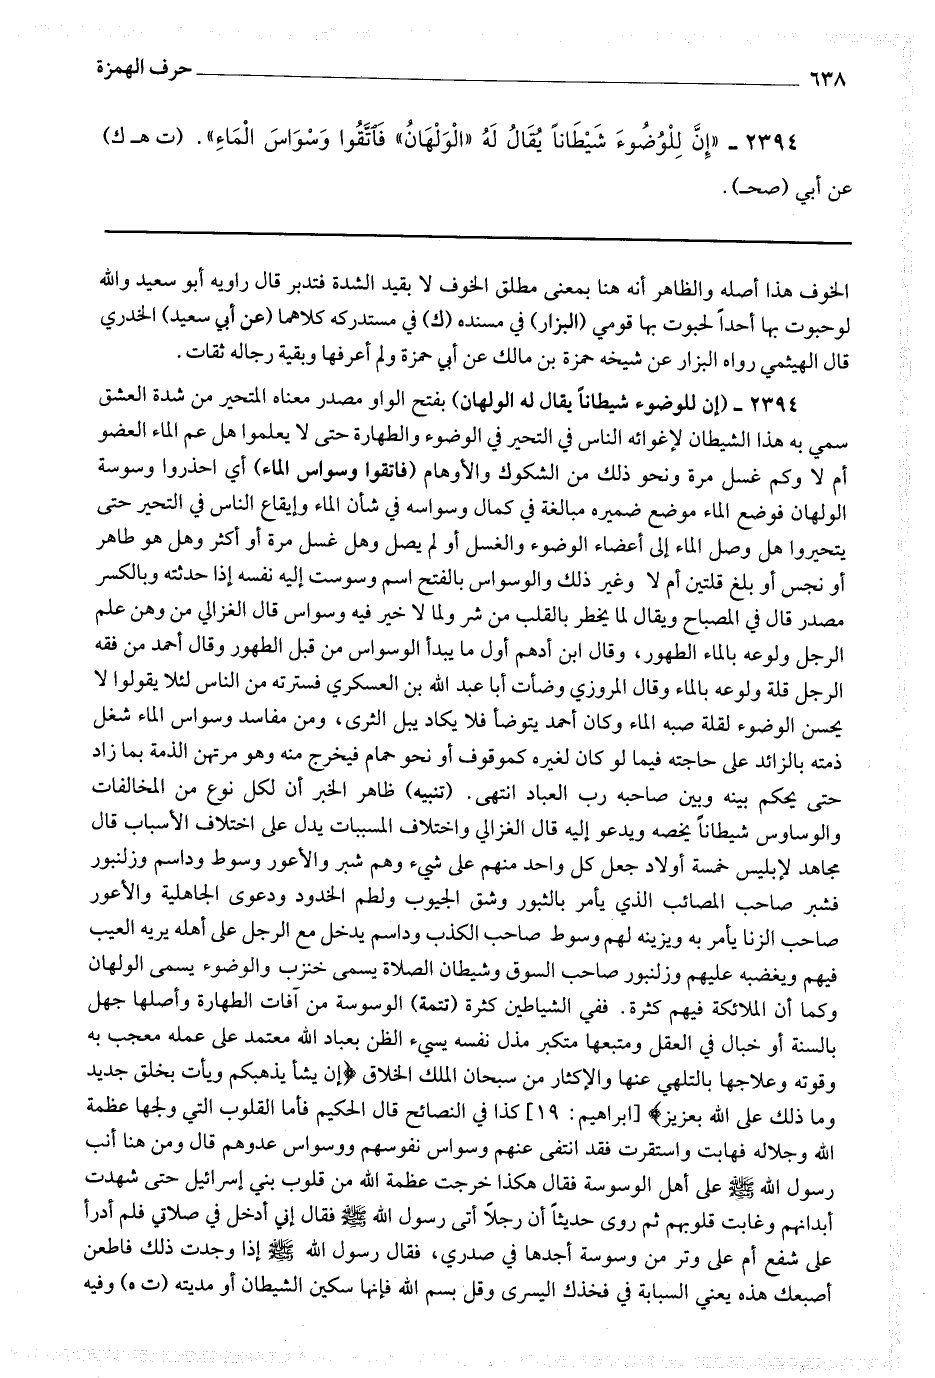 ٦٣٨ حرف الهمزة
٢٣٩٤ ـ «إِنَّ لِلْوُضُوءَ شَيْطَاناً يُقَالُ لَهُ «الْوَلْهَانُ» فَاتَّقُوا وَسْوَاسَ الْمَاءِ». (ت هـ ك)
عن أبي (صحـ).
الخوف هذا أصله والظاهر أنه هنا بمعنى مطلق الخوف لا بقيد الشدة فتدبر قال راويه أبو سعيد والله
لوحبوت بها أحداً لحبوت بها قومي (البزار) في مسنده (ك) في مستدركه كلاهما (عن أبي سعيد) الخدري
قال الهيثمي رواه البزار عن شيخه حمزة بن مالك عن أبي حمزة ولم أعرفها وبقية رجاله ثقات.
٢٣٩٤ ـ (إن للوضوء شيطاناً يقال له الولهان) بفتح الواو مصدر معناه المتحير من شدة العشق
سمي به هذا الشيطان لإغوائه الناس في التحير في الوضوء والطهارة حتى لا يعلموا هل عم الماء العضو
أم لا وكم غسل مرة ونحو ذلك من الشكوك والأوهام (فاتقوا وسواس الماء) أي احذروا وسوسة
الولهان فوضع الماء موضع ضميره مبالغة في كمال وسواسه في شأن الماء وإيقاع الناس في التحير حتى
يتحيروا هل وصل الماء إلى أعضاء الوضوء والغسل أو لم يصل وهل غسل مرة أو أكثر وهل هو طاهر
أو نجس أو بلغ قلتين أم لا وغير ذلك والوسواس بالفتح اسم وسوست إليه نفسه إذا حدثته وبالكسر
مصدر قال في المصباح ويقال لما يخطر بالقلب من شر ولما لا خير فيه وسواس قال الغزالي من وهن علم
الرجل ولوعه بالماء الطهور، وقال ابن أدهم أول ما يبدأ الوسواس من قبل الطهور وقال أحمد من فقه
الرجل قلة ولوعه بالماء وقال المروزي وضأت أبا عبد الله بن العسكري فسترته من الناس لئلا يقولوا لا
يحسن الوضوء لقلة صبه الماء وكان أحمد يتوضأ فلا يكاد يبل الثرى، ومن مفاسد وسواس الماء شغل
ذمته بالزائد على حاجته فيما لو كان لغيره كموقوف أو نحو حمام فيخرج منه وهو مرتهن الذمة بما زاد
حتى يحكم بينه وبين صاحبه رب العباد انتهى. (تنبيه) ظاهر الخبر أن لكل نوع من المخالفات
والوساوس شيطاناً يخصه ويدعو إليه قال الغزالي واختلاف المسببات يدل على اختلاف الأسباب قال
مجاهد لإبليس خمسة أولاد جعل كل واحد منهم على شيء وهم شبر والأعور وسوط وداسم وزلنبور
فشبر صاحب المصائب الذي يأمر بالثبور وشق الجيوب ولطم الخدود ودعوى الجاهلية والأعور
صاحب الزنا يأمر به ويزينه لهم وسوط صاحب الكذب وداسم يدخل مع الرجل على أهله يريه العيب
فيهم ويغضبه عليهم وزلنبور صاحب السوق وشيطان الصلاة يسمى خنزب والوضوء يسمى الولهان
وكما أن الملائكة فيهم كثرة. ففي الشياطين كثرة (تتمة) الوسوسة من آفات الطهارة وأصلها جهل
بالسنة أو خبال في العقل ومتبعها متكبر مذل نفسه يسيء الظن بعباد الله معتمد على عمله معجب به
وقوته وعلاجها بالتلهي عنها والإكثار من سبحان الملك الخلاق ﴿إن يشأ يذهبكم ويأت بخلق جديد
وما ذلك على الله بعزيز﴾ [ابراهيم: ١٩] كذا في النصائح قال الحكيم فأما القلوب التي ولجها عظمة
الله وجلاله فهابت واستقرت فقد انتفى عنهم وسواس نفوسهم ووسواس عدوهم قال ومن هنا أنب
رسول الله ﷺ على أهل الوسوسة فقال هكذا خرجت عظمة الله من قلوب بني إسرائيل حتى شهدت
أبدانهم وغابت قلوبهم ثم روى حديثاً أن رجلاً أتى رسول الله ﷺ فقال إني أدخل في صلاتي فلم أدرأ
على شفع أم على وتر من وسوسة أجدها في صدري، فقال رسول الله ﷺ إذا وجدت ذلك فاطعن
أصبعك هذه يعني السبابة في فخذك اليسرى وقل بسم الله فإنها سكين الشيطان أو مديته (ت ه) وفيه